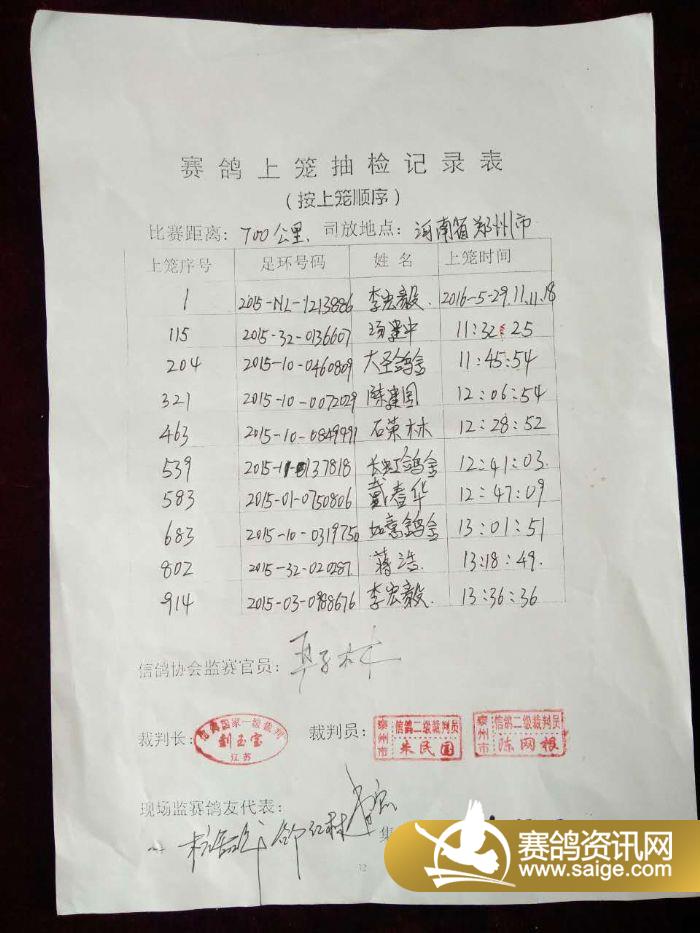 赛鸽上笼抽检记录表
(按上笼顺序)
比赛距离: 700公里. 司放地点: 河南省郑州市
上笼序号 足环号码 姓名 上笼时间
1 2015-NL-1213886 李宏毅. 2016-5-29.11.11.18
115 2015-32-0136607 杨建中 11:32:25
204 2015-10-0460809 大圣鸽舍 11:45:54
321 2015-10-0072029 陈建国 12:06:54
463 2015-10-0849991 石荣林 12:28:52
539 137818 长虹鸽舍 12:41:03.
583 2015-01-0750806 戴春华 12:47:09
683 2015-10-0319756 如意鸽舍 13:01:51
802 2015-32-020287. 蒋浩 13:18:49.
914 2015-03-0988676 李宏毅. 13:36:36
信鸽协会监赛官员:
裁判长: 信鸽国家一级裁判 刘玉宝 江苏 裁判员: 泰州市 信鸽二级裁判员 朱民国 泰州市 信鸽二级裁判员 陈网根
现场监赛鸽友代表:
集
赛鸽资讯网
www.saige.com